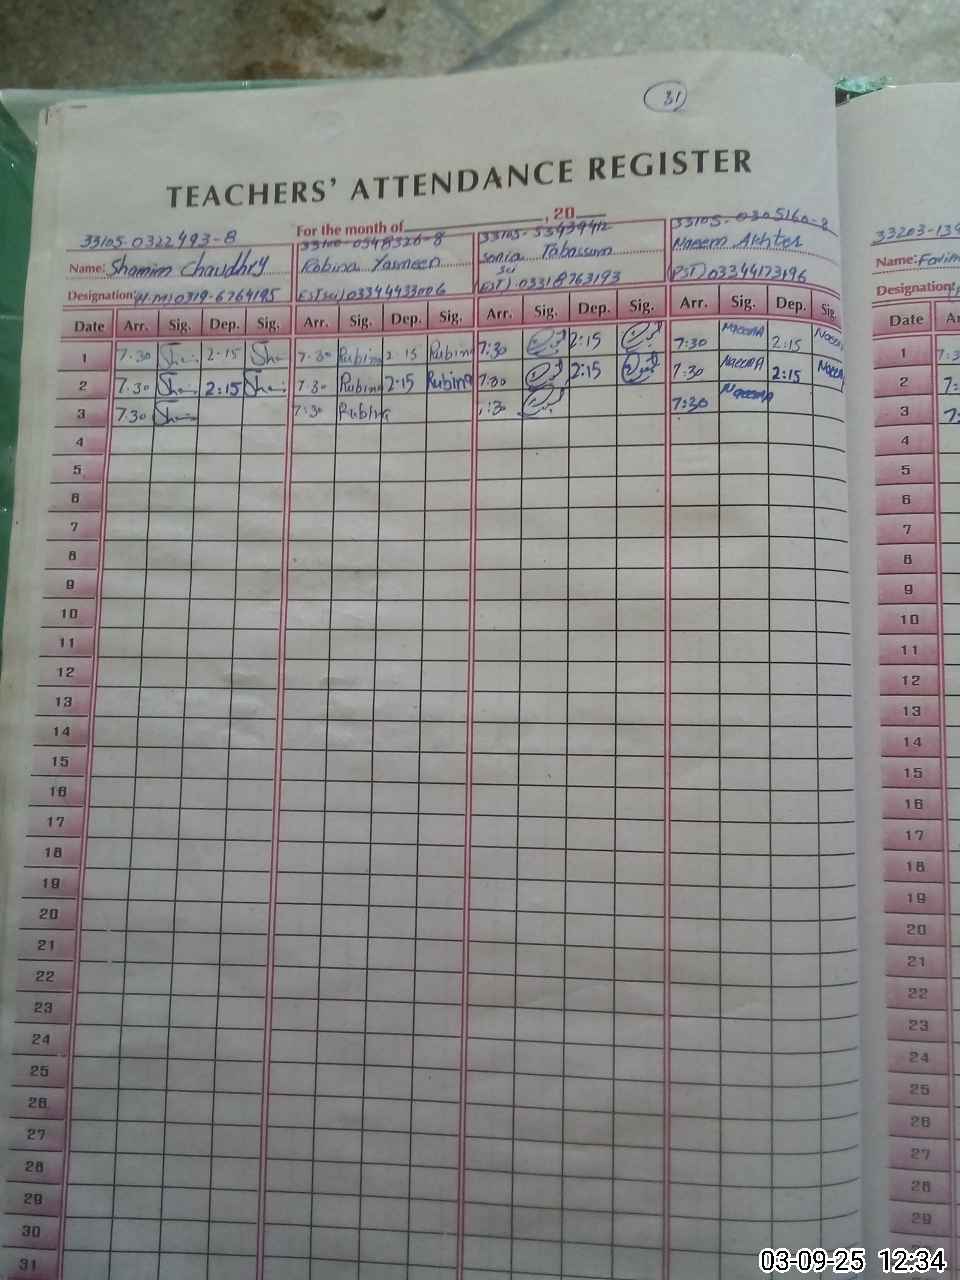 31
TEACHERS' ATTENDANCE REGISTER
For the month of , 20
33105-0322493-8 33100-0548326-8 33105-53439412 33105-0305160-8 33203-139
Name: Shamim Chaudhry Robina Yasmeen Sonia Tabassum Naeem Akhter Name:
Designation: (H.M) 0319-6764195 EST sci) 03344433006 Sci (EST) 03318763193 (PST) 03344173196 Designation
Date Arr. Sig. Dep. Sig. Arr. Sig. Dep. Sig. Arr. Sig. Dep. Sig. Arr. Sig. Dep. Sig. Date
1 7:30 2-15 7-30 Rubina 2-15 Rubina 7:30 2:15 7:30 Naeem 2:15 Naeem 1
2 7:30 2:15 7-30 Rubina 2-15 Rubina 7:30 2:15 7:30 Naeem 2:15 Naeem 2
3 7:30 7:30 Rubina :30 7:30 Naeem 3
4 4
5 5
6 6
7 7
8 8
9 9
10 10
11 11
12 12
13 13
14 14
15 15
16 16
17 17
18 18
19 19
20 20
21 21
22 22
23 23
24 24
25 25
26 26
27 27
28 28
29 29
30
31
03-09-25 12:34